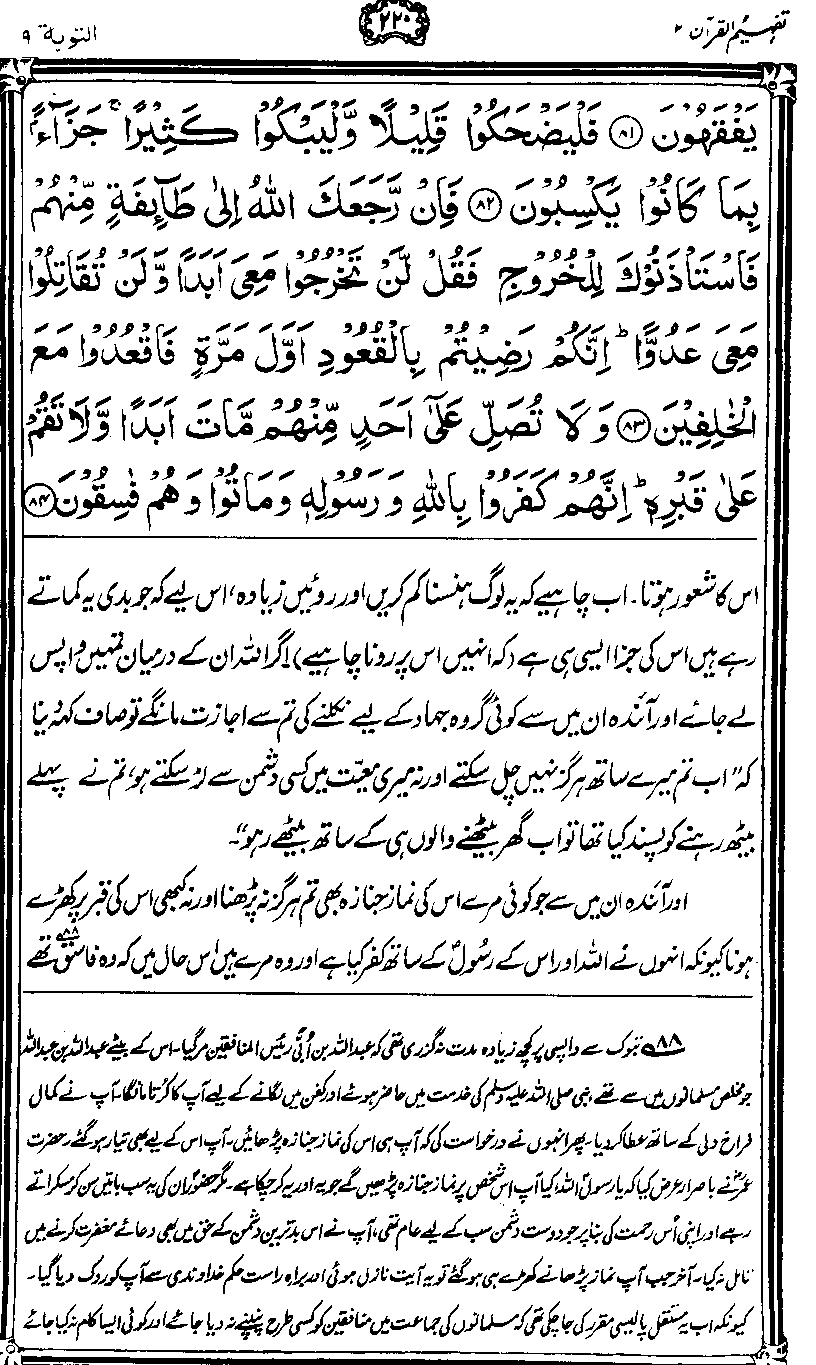 تفہیم القرآن ۲
۲۲۰
التوبۃ ۹
يَفْقَهُوْنَ ﴿۸۱﴾ فَلْيَضْحَكُوْا قَلِيْلًا وَّلْيَبْكُوْا كَثِيْرًا ۚ جَزَآءًۢ
بِمَا كَانُوْا يَكْسِبُوْنَ ﴿۸۲﴾ فَاِنْ رَّجَعَكَ اللّٰهُ اِلٰى طَآئِفَةٍ مِّنْهُمْ
فَاسْتَاْذَنُوْكَ لِلْخُرُوْجِ فَقُلْ لَّنْ تَخْرُجُوْا مَعِىَ اَبَدًا وَّلَنْ تُقَاتِلُوْا
مَعِىَ عَدُوًّا ؕ اِنَّكُمْ رَضِيْتُمْ بِالْقُعُوْدِ اَوَّلَ مَرَّةٍ فَاقْعُدُوْا مَعَ
الْخٰلِفِيْنَ ﴿۸۳﴾ وَلَا تُصَلِّ عَلٰٓى اَحَدٍ مِّنْهُمْ مَّاتَ اَبَدًا وَّلَا تَقُمْ
عَلٰى قَبْرِهٖ ؕ اِنَّهُمْ كَفَرُوْا بِاللّٰهِ وَرَسُوْلِهٖ وَمَاتُوْا وَهُمْ فٰسِقُوْنَ ﴿۸۴﴾
اس کا شعور ہوتا۔ اب چاہیے کہ یہ لوگ ہنسنا کم کریں اور روئیں زیادہ، اس لیے کہ جو بدی یہ کماتے
رہے ہیں اس کی جزا ایسی ہی ہے (کہ انہیں اس پر رونا چاہیے)۔ اگر اللہ ان کے درمیان تمہیں واپس
لے جائے اور آئندہ ان میں سے کوئی گروہ جہاد کے لیے نکلنے کی تم سے اجازت مانگے تو صاف کہہ دینا
کہ "اب تم میرے ساتھ ہرگز نہیں چل سکتے اور نہ میری معیت میں کسی دشمن سے لڑ سکتے ہو، تم نے پہلے
بیٹھ رہنے کو پسند کیا تھا تو اب گھر بیٹھنے والوں ہی کے ساتھ بیٹھے رہو"۔
اور آئندہ ان میں سے جو کوئی مرے اس کی نماز جنازہ بھی تم ہرگز نہ پڑھنا اور نہ کبھی اس کی قبر پر کھڑے
ہونا کیونکہ انہوں نے اللہ اور اس کے رسولؐ کے ساتھ کفر کیا ہے اور وہ مرے ہیں اس حال میں کہ وہ فاسق تھے ۸۸
۸۸ تبوک سے واپسی پر کچھ زیادہ مدت نہ گزری تھی کہ عبداللہ بن اُبَیّ رئیس المنافقین مر گیا۔ اس کے بیٹے عبداللہ بن عبداللہ
جو مخلص مسلمانوں میں سے تھے، نبی صلی اللہ علیہ وسلم کی خدمت میں حاضر ہوئے اور کفن میں لگانے کے لیے آپ کا کرتا مانگا۔ آپ نے کمال
فراخ دلی کے ساتھ عطا کر دیا۔ پھر انہوں نے درخواست کی کہ آپ ہی اس کی نماز جنازہ پڑھائیں۔ آپ اس کے لیے بھی تیار ہو گئے۔ حضرت
عمرؓ نے باصرار عرض کیا کہ یا رسول اللہ، کیا آپ اس شخص پر نماز جنازہ پڑھیں گے جو یہ اور یہ کر چکا ہے۔ مگر حضورؐ ان کی یہ سب باتیں سن کر مسکراتے
رہے اور اپنی اُس رحمت کی بنا پر جو دوست دشمن سب کے لیے عام تھی، آپ نے اس بدترین دشمن کے حق میں بھی دعائے مغفرت کرنے میں
تامل نہ کیا۔ آخر جب آپ نماز پڑھانے کھڑے ہی ہو گئے تو یہ آیت نازل ہوئی اور براہ راست حکم خداوندی سے آپ کو روک دیا گیا۔
کیونکہ اب یہ مستقل پالیسی مقرر کی جا چکی تھی کہ مسلمانوں کی جماعت میں منافقین کو کسی طرح پنپنے نہ دیا جائے اور کوئی ایسا کام نہ کیا جائے